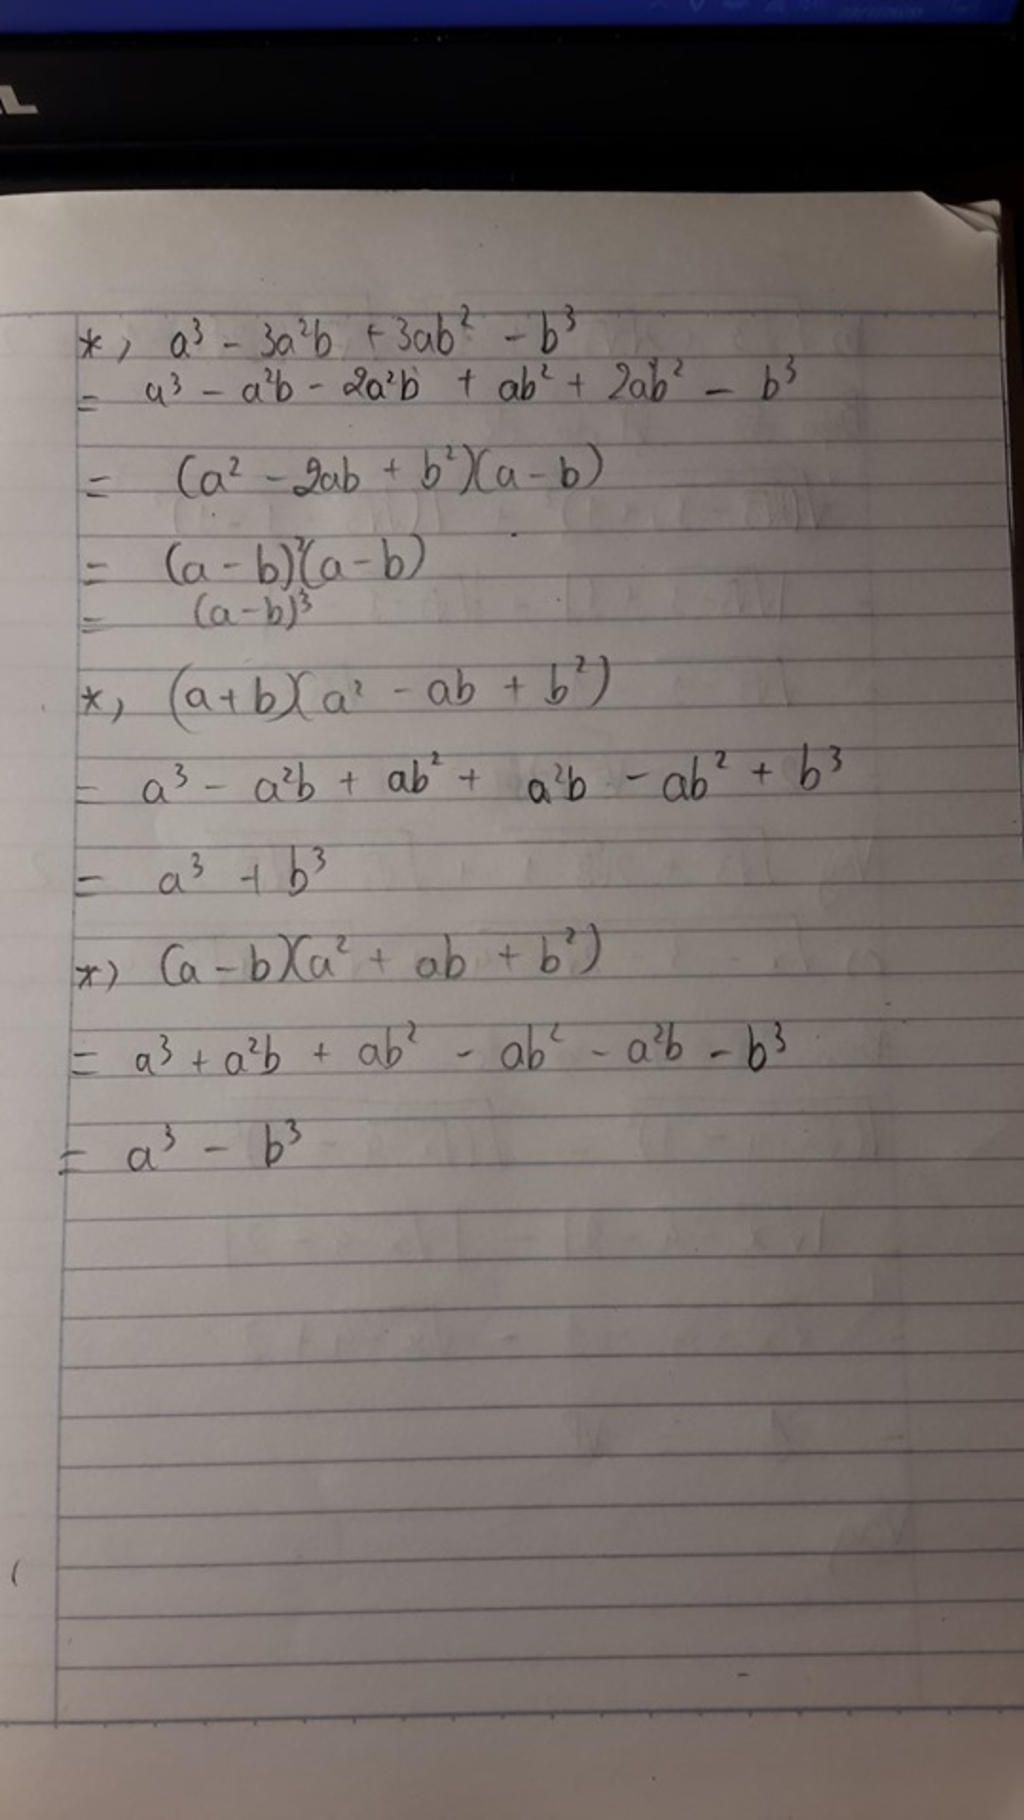 L
*, a³ - 3a²b + 3ab² - b³
= a³ - a²b - 2a²b + ab² + 2ab² - b³
= (a² - 2ab + b²)(a - b)
= (a - b)²(a - b)
= (a-b)³
*, (a+b)(a² - ab + b²)
= a³ - a²b + ab² + a²b - ab² + b³
= a³ + b³
*) (a - b)(a² + ab + b²)
= a³ + a²b + ab² - ab² - a²b - b³
= a³ - b³